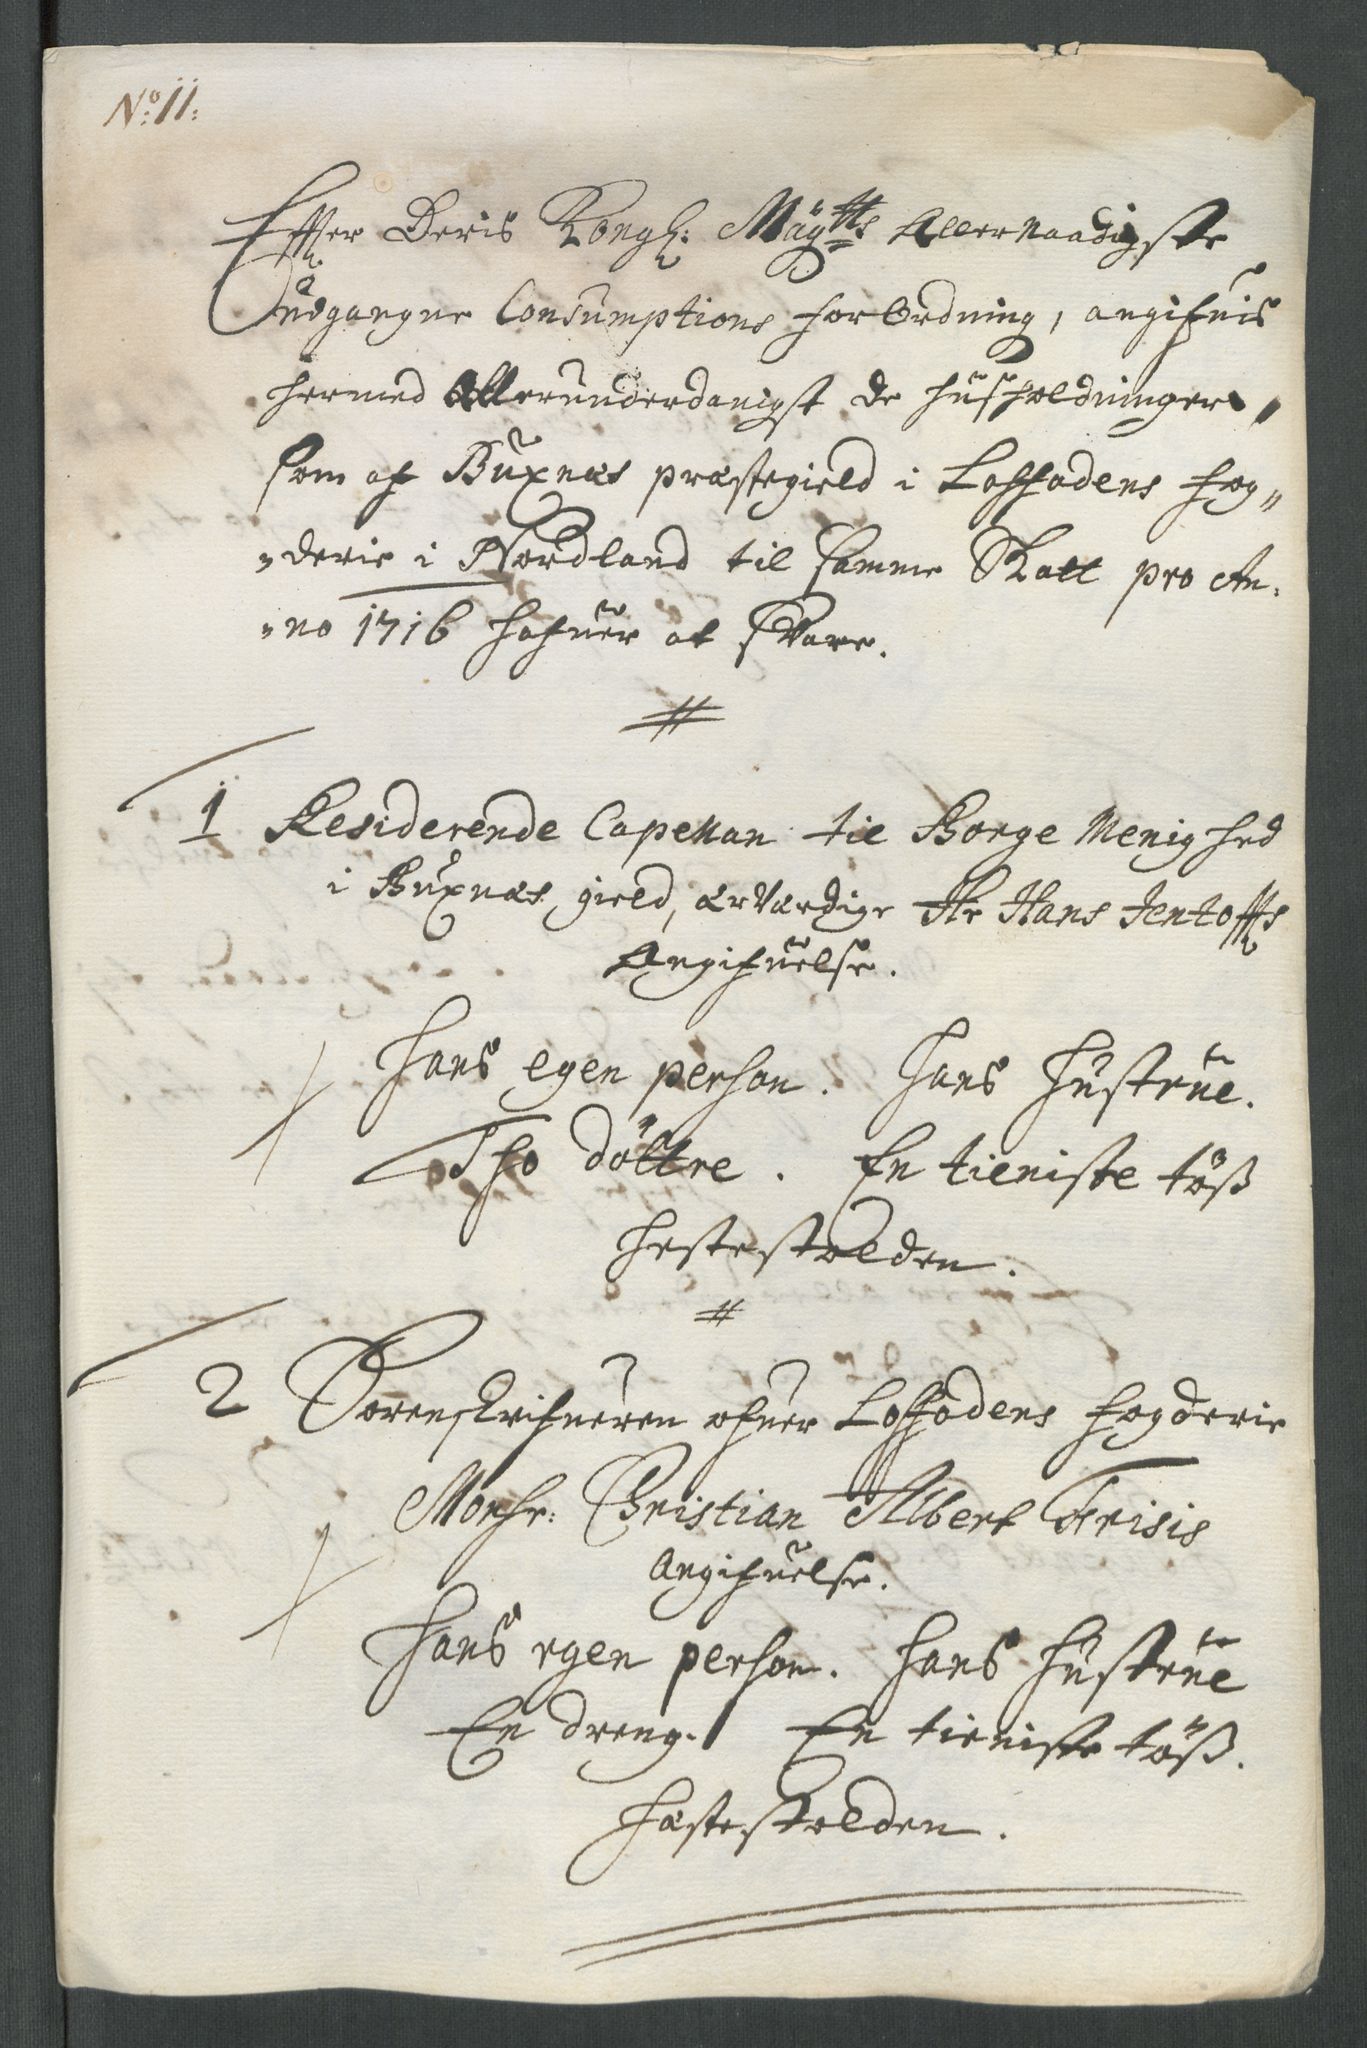 No: 11:
Effter Deris Kongl: Mäytts Allernaadigste
Udgangne Consumptions forOrdning, angifuis
hermed Allerunderdanigst de huusholdninger,
som af Buxnæs præstegield i Loffodens fog„
„derie i Nordland til samme Skatt pro An„
„no 1716 hafuer at svare.
1 Residerende Capellan til Borge Menighed
i Buxnæs gield, ærværdige Hr Hans Jentoffts
Angifuelse.
Hans egen person. Hans Hustrue.
Tho döttre. En tieniste töß
Hesteskolden.
2 Sorenskrifueren ofuer Loffodens fogderie
Monsr: Christian Albert Frisis
Angifuelse.
Hans egen person. Hans Hustrue
En dreng. En tieniste töß.
Hæsteskolden.